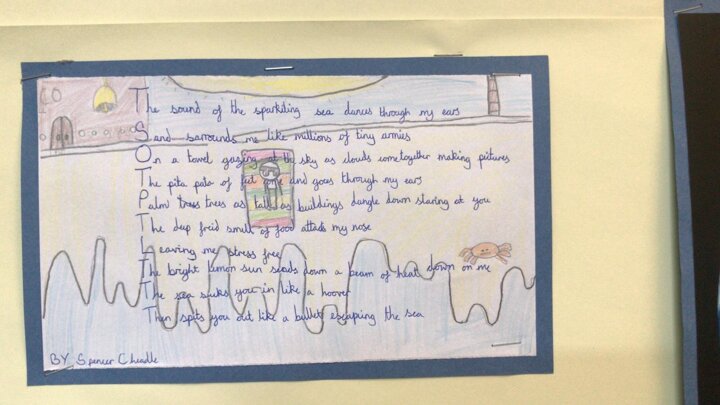 The sound of the sparkiling sea dances through my ears
Sand sarrounds me like millions of tiny armies
On a towel gazing at the sky as clouds come together making pitures
The pita pata of feet and goes through my ears
Palm trees as tall as buildings dangle down staring at you
The deep freid smell of food attacks my nose
Leaving me stress free
The bright lemon sun seads down a beam of heat down on me
The sea sucks you in like a hoover
Then spits you out like a bullet escaping the sea
BY Spencer Cheadle